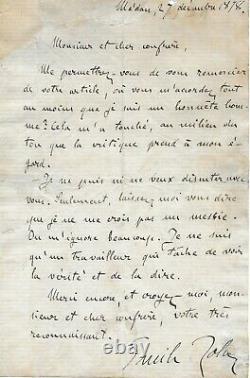 Médan, 27 décembre 1878.
Monsieur et cher confrère,
Me permettrez-vous de vous remercier
de votre article, où vous m'accordez tout
au moins que je suis un honnête hom-
me? Cela m'a touché, au milieu du
ton que la critique prend à mon é-
gard.
Je ne puis ni ne veux discuter avec
vous. Seulement, laissez-moi vous dire
que je ne me crois pas un messie.
On m'ignore beaucoup. Je ne suis
qu'un travailleur qui tâche de voir
la vérité et de la dire.
Merci encore, et croyez-moi, mon-
sieur et cher confrère, votre très
reconnaissant.
Emile Zola